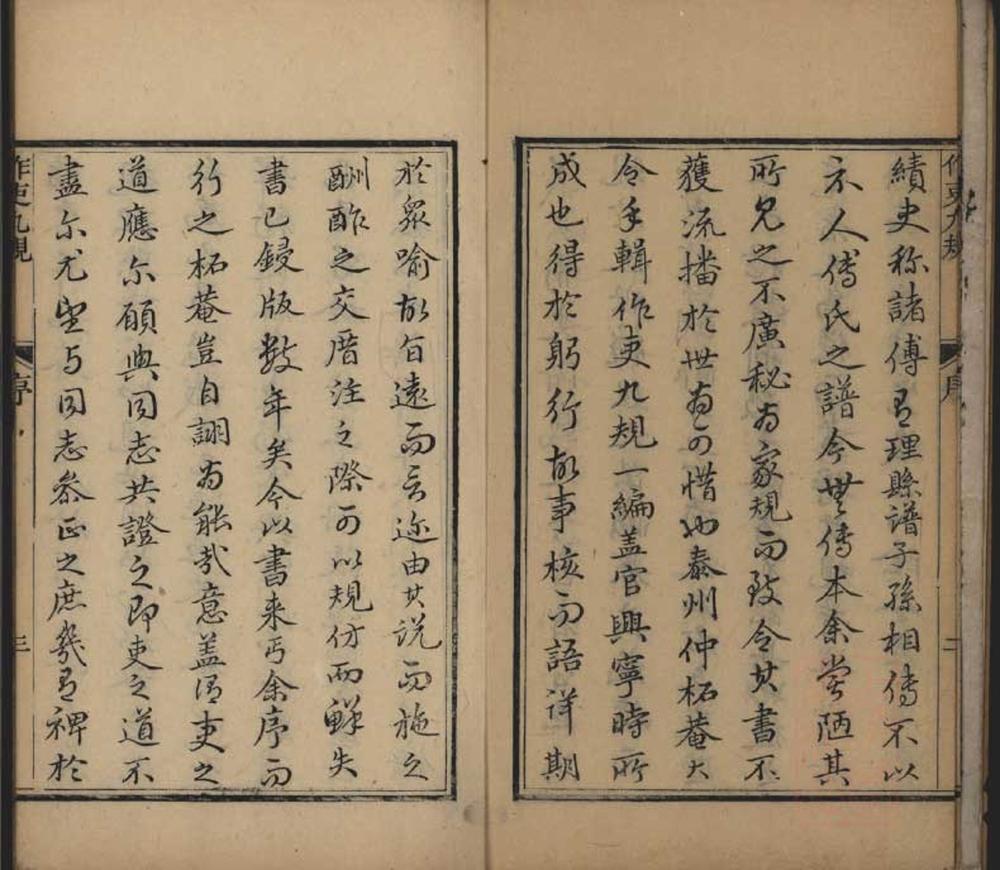 作吏九規
序
二
績史称諸傅有理縣譜子孫相傳不以
示人傅氏之譜今世無傳本余嘗陋其
所見之不廣秘為家規而致令其書不
獲流播於世為可惜也泰州仲柘菴大
令手輯作吏九規一編盖官興寧時所
成也得於躬行故事核而語詳期
於眾喻故旨遠而言迩由其說而施之
酬酢之交厝注之際可以規仿而鮮失
書已鋟版數年矣今以書来丐余序而
行之柘菴豈自詡為能哉意盖謂吏之
道應尔願與同志共證之即吏之道不
盡尔尤望与同志叅正之庶幾有裨於
作吏九規
序
三